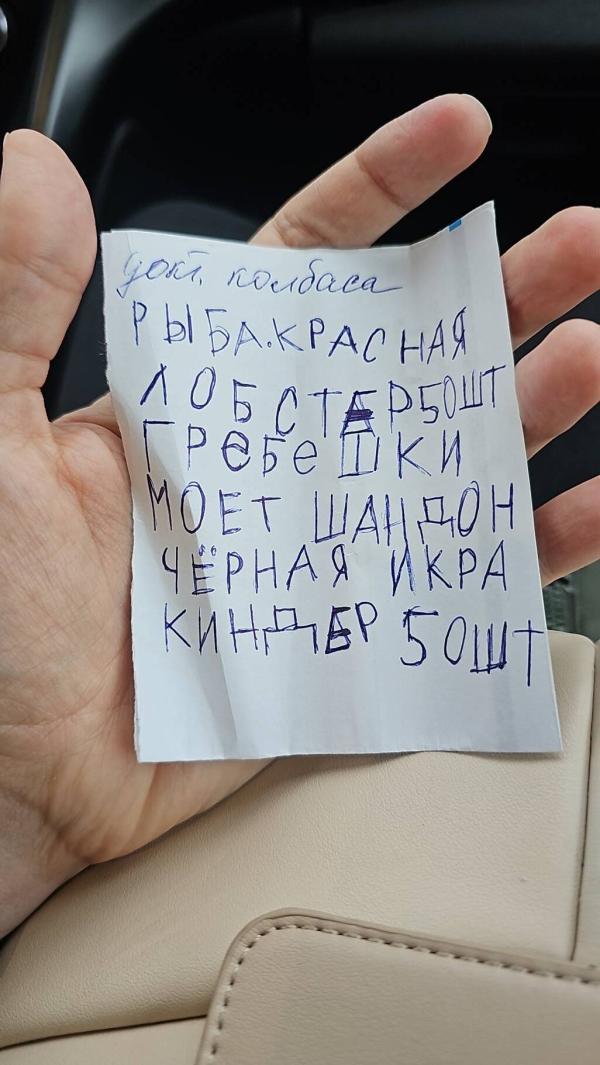 докт. колбаса
РЫБА.КРАСНАЯ
ЛОБСТЕР50ШТ
ГРеБеШКИ
МОЕТ ШАНДОН
ЧЁРНАЯ ИКРА
КИНДЕР 50ШТ